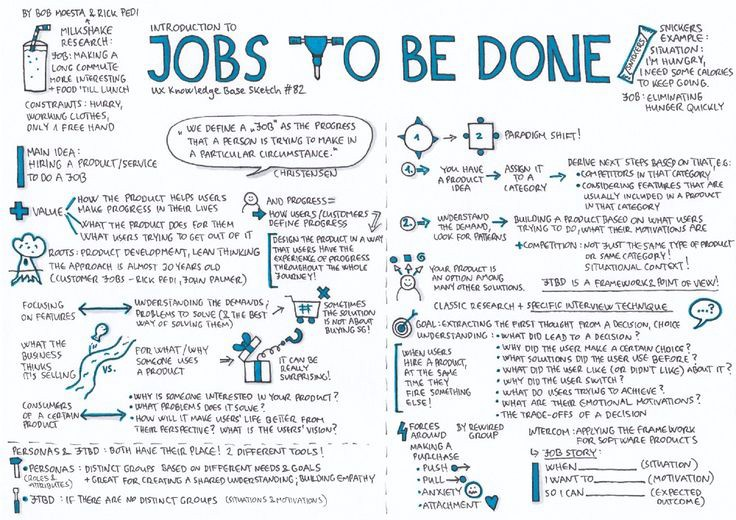 BY BOB MOESTA & RICK PEDI
MILKSHAKE
RESEARCH:
JOB: MAKING A
LONG COMMUTE
MORE INTERESTING
+ FOOD 'TILL LUNCH
CONSTRAINTS: HURRY,
WORKING CLOTHES,
ONLY 1 FREE HAND
INTRODUCTION TO
JOBS TO BE DONE
UX Knowledge Base Sketch #82
SNICKERS
SNICKERS
EXAMPLE:
SITUATION:
I'M HUNGRY,
I NEED SOME CALORIES
TO KEEP GOING.
JOB: ELIMINATING
HUNGER QUICKLY
"WE DEFINE A „JOB" AS THE PROGRESS
THAT A PERSON IS TRYING TO MAKE IN
A PARTICULAR CIRCUMSTANCE."
CHRISTENSEN
MAIN IDEA:
HIRING A PRODUCT/SERVICE
TO DO A JOB
VALUE
HOW THE PRODUCT HELPS USERS
MAKE PROGRESS IN THEIR LIVES
WHAT THE PRODUCT DOES FOR THEM
WHAT USERS TRYING TO GET OUT OF IT
AND PROGRESS =
HOW USERS/CUSTOMERS
DEFINE PROGRESS
DESIGN THE PRODUCT IN A WAY
THAT USERS HAVE THE
EXPERIENCE OF PROGRESS
THROUGHOUT THE WHOLE
JOURNEY!
ROOTS: PRODUCT DEVELOPMENT, LEAN THINKING
THE APPROACH IS ALMOST 20 YEARS OLD
(CUSTOMER JOBS - RICK PEDI, JOHN PALMER)
FOCUSING
ON FEATURES
UNDERSTANDING THE DEMANDS;
PROBLEMS TO SOLVE (& THE BEST
WAY OF SOLVING THEM)
#
SOMETIMES
THE SOLUTION
IS NOT ABOUT
BUYING SG!
WHAT THE
BUSINESS
THINKS
IT'S SELLING
VS.
FOR WHAT / WHY
SOMEONE USES
A PRODUCT
?
IT CAN BE
REALLY
SURPRISING!
CONSUMERS
OF A CERTAIN
PRODUCT
• WHY IS SOMEONE INTERESTED IN YOUR PRODUCT?
• WHAT PROBLEMS DOES IT SOLVE?
• HOW WILL IT MAKE USERS' LIFE BETTER FROM
THEIR PERSPECTIVE? WHAT IS THE USERS' VISION?
PERSONAS & JTBD: BOTH HAVE THEIR PLACE! 2 DIFFERENT TOOLS!
• PERSONAS: DISTINCT GROUPS BASED ON DIFFERENT NEEDS & GOALS
(ROLES & ATTRIBUTES) + GREAT FOR CREATING A SHARED UNDERSTANDING, BUILDING EMPATHY
• JTBD: IF THERE ARE NO DISTINCT GROUPS (SITUATIONS & MOTIVATIONS)
1 2 PARADIGM SHIFT!
1. YOU HAVE
A PRODUCT
IDEA
ASSIGN IT
TO A
CATEGORY
DERIVE NEXT STEPS BASED ON THAT, E.G:
• COMPETITORS IN THAT CATEGORY
• CONSIDERING FEATURES THAT ARE
USUALLY INCLUDED IN A PRODUCT
IN THAT CATEGORY
2. UNDERSTAND
THE DEMAND,
LOOK FOR PATTERNS
BUILDING A PRODUCT BASED ON WHAT USERS
TRYING TO DO, WHAT THEIR MOTIVATIONS ARE
+ COMPETITION: NOT JUST THE SAME TYPE OF PRODUCT
OR SAME CATEGORY!
SITUATIONAL CONTEXT!
YOUR PRODUCT IS
AN OPTION AMONG
MANY OTHER SOLUTIONS.
JTBD IS A FRAMEWORK & POINT OF VIEW!
CLASSIC RESEARCH + SPECIFIC INTERVIEW TECHNIQUE
...?
GOAL: EXTRACTING THE FIRST THOUGHT FROM A DECISION, CHOICE
UNDERSTANDING:
• WHAT DID LEAD TO A DECISION?
• WHY DID THE USER MAKE A CERTAIN CHOICE?
• WHAT SOLUTIONS DID THE USER USE BEFORE?
• WHAT DID THE USER LIKE (OR DIDN'T LIKE) ABOUT IT?
• WHY DID THE USER SWITCH?
• WHAT DO USERS TRYING TO ACHIEVE?
• WHAT ARE THEIR EMOTIONAL MOTIVATIONS?
• THE TRADE-OFFS OF A DECISION
WHEN USERS
HIRE A PRODUCT,
AT THE SAME
TIME THEY
FIRE SOMETHING
ELSE!
4 FORCES
AROUND
MAKING A
PURCHASE
BY REWIRED
GROUP
• PUSH
• PULL
• ANXIETY
• ATTACHMENT
INTERCOM: APPLYING THE FRAMEWORK
FOR SOFTWARE PRODUCTS
JOB STORY:
WHEN __________ (SITUATION)
I WANT TO __________ (MOTIVATION)
SO I CAN __________ (EXPECTED
OUTCOME)